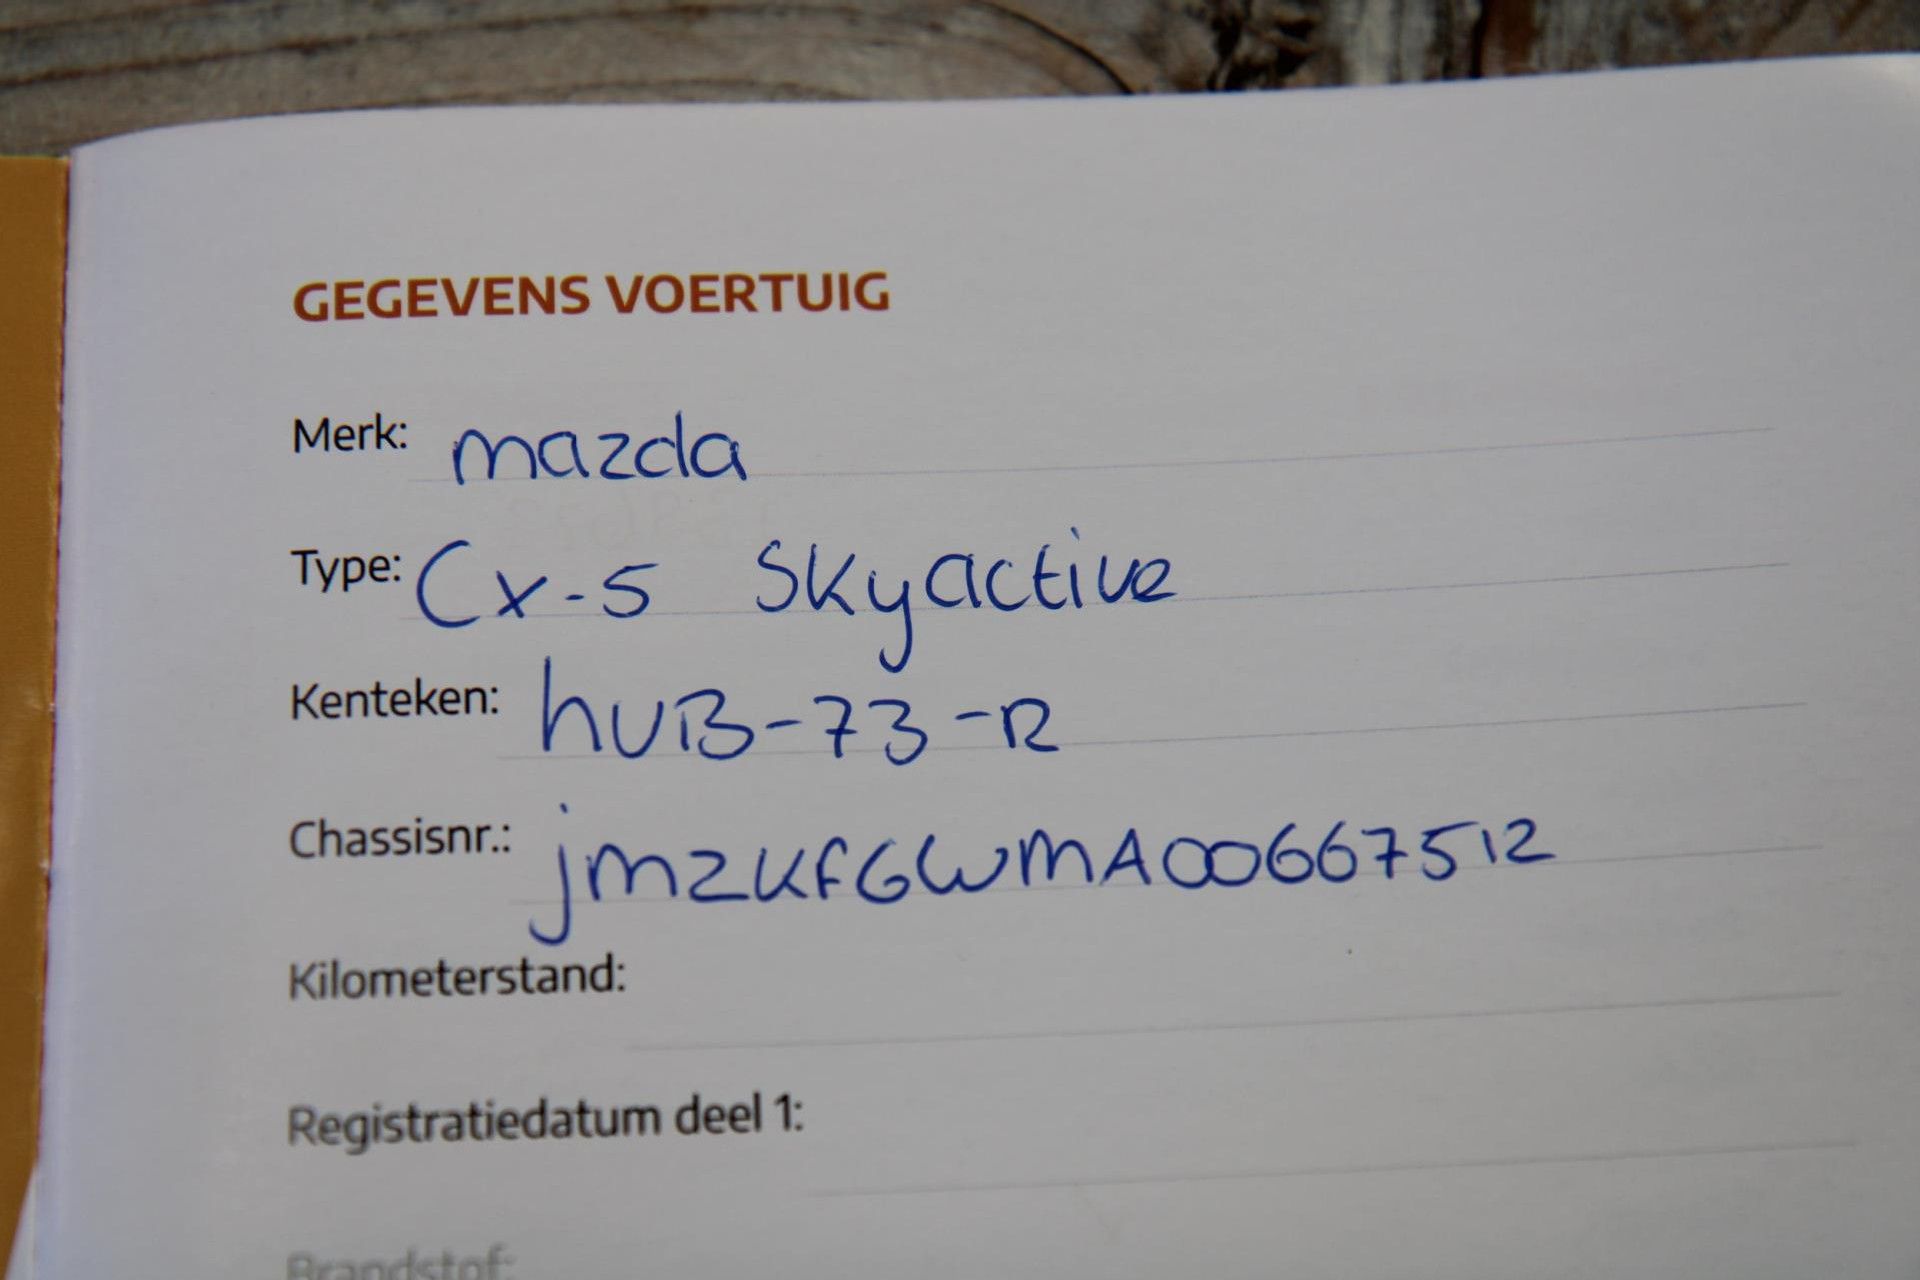 GEGEVENS VOERTUIG
Merk: mazda
Type: Cx-5 Skyactive
Kenteken: hUB-73-R
Chassisnr.: jmzKfGWMA00667512
Kilometerstand:
Registratiedatum deel 1:
Brandstof: